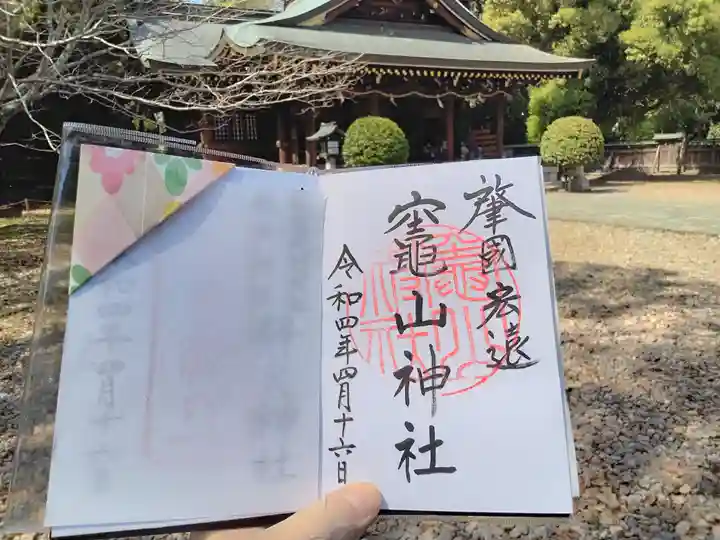 肇國宏遠
竈山神社
令和四年四月十六日